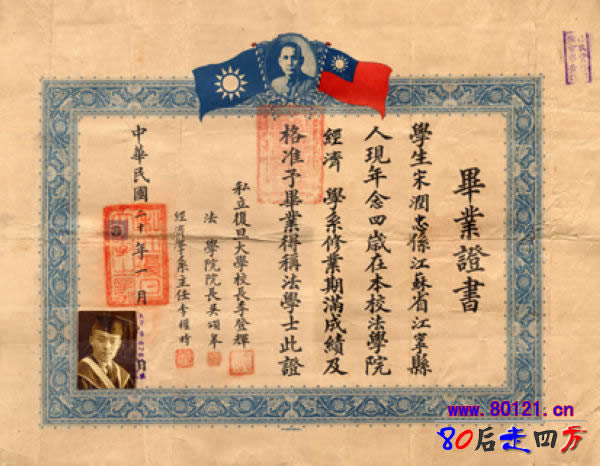 畢業證書
學生宋潤忠係江蘇省江寧縣
人現年念四歲在本校法學院
經濟 學系修業期滿成績及
格准予畢業得稱法學士此證
私立復旦大學校長李登輝
法 學院院長吳頌皋
經濟學系主任李權時
中華民國二十年一月
www.80121.cn
80后走四方